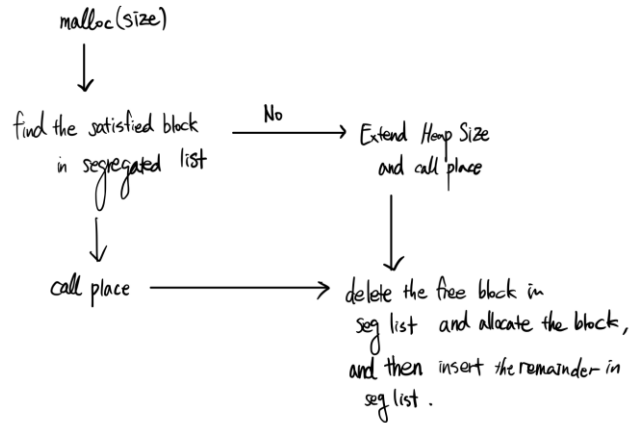 malloc(size)
find the satisfied block
in segregated list
No
Extend Heap Size
and call place
call place
delete the free block in
seg list and allocate the block,
and then insert the remainder in
seg list.